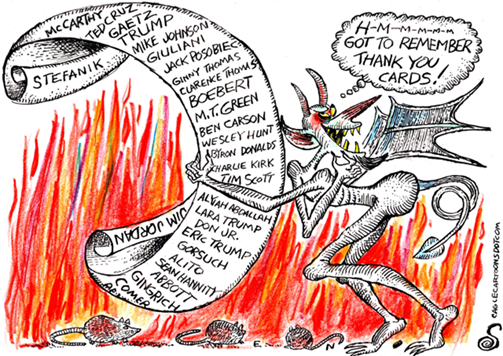 H-M-M-M-M-M
GOT TO REMEMBER
THANK YOU
CARDS!
STEFANIK
McCARTHY
TED CRUZ
GAETZ
TRUMP
MIKE JOHNSON
GIULIANI
JACK POSOBIEC
GINNY THOMAS
CLAREKE THOMAS
BOEBERT
M.T. GREEN
BEN CARSON
WESLEY HUNT
BYRON DONALDS
CHARLIE KIRK
TIM SCOTT
ALYAH ABDALLAH
LARA TRUMP
DON JR.
ERIC TRUMP
GORSUCH
ALITO
SEAN HANNITY
ABBOTT
GINGRICH
COMER
JIM JORDAN
EAGLECARTOONSDOTCOM